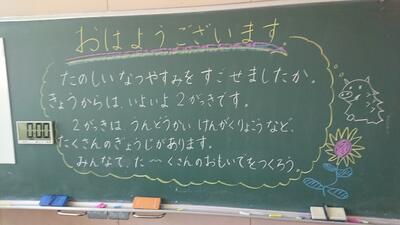 おはようございます。
たのしいなつやすみをすごせましたか。
きょうからは、いよいよ2がっきです。
2がっきは、うんどうかい けんがくりょこうなど、
たくさんのぎょうじがあります。
みんなで、た〜くさんのおもいでをつくろう。
0:00